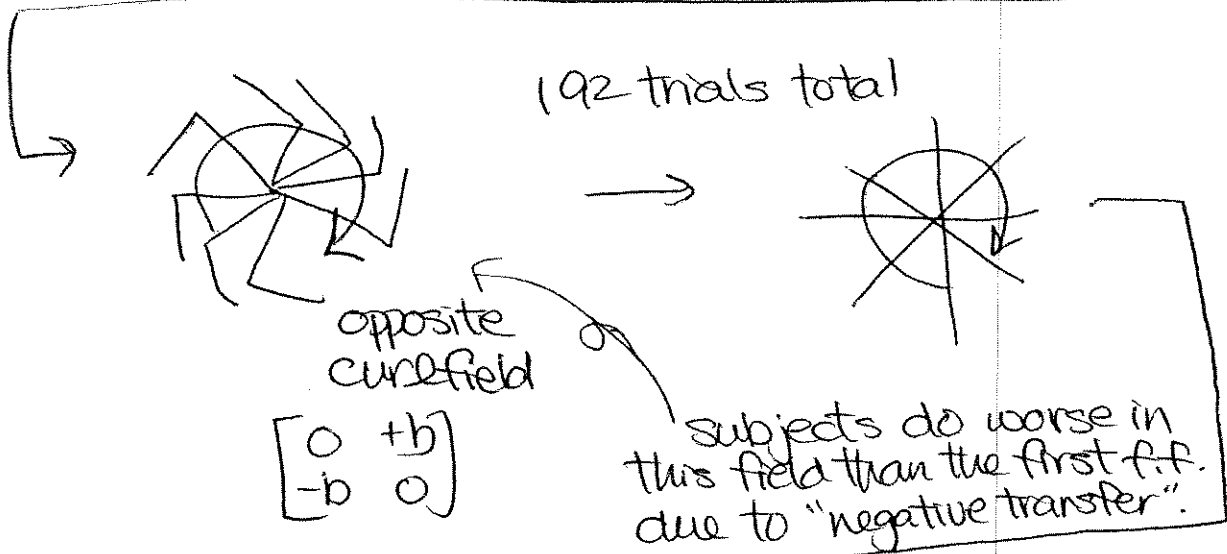 192 trials total
opposite
curlfield
[0 +b]
[-b 0]
subjects do worse in
this field than the first f.f.
due to "negative transfer".